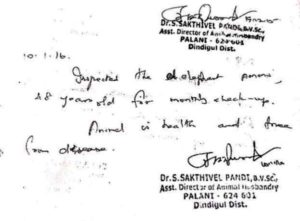 Dr.S.SAKTHIVEL PANDI,B.V.Sc.,
Asst. Director of Animal Husbandry
PALANI - 624 601
Dindigul Dist.
10.1.16.
Inspected the elephant
48 years old for monthly check-up.
Animal is health and free
from disease.
Dr.S.SAKTHIVEL PANDI,B.V.Sc.,
Asst. Director of Animal Husbandry
PALANI - 624 601
Dindigul Dist.